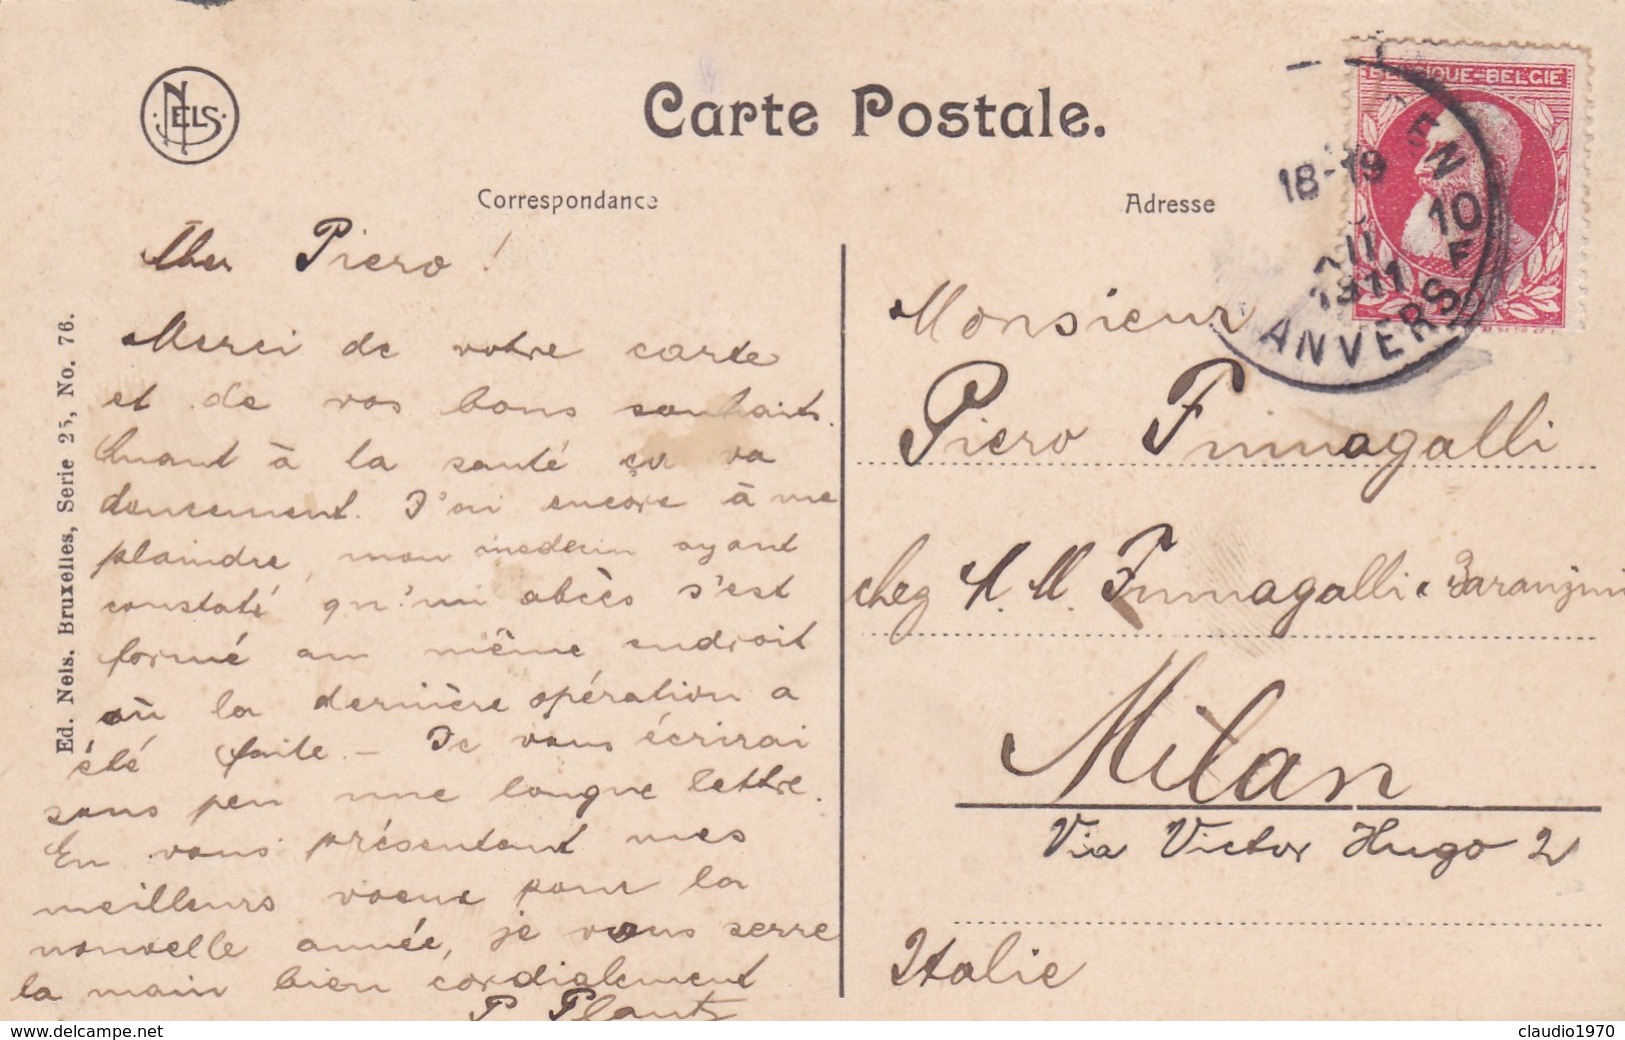 NELS
Carte Postale.
Correspondance
Adresse
BELGIQUE-BELGIE
18-19
10
1911
F
ANVERS
Ed. Nels. Bruxelles, Serie 25, No. 76.
Cher Piero !
Merci de votre carte
et de vos bons souhaits.
Quant à la santé ça va
doucement. J'ai encore à me
plaindre, mon médecin ayant
constaté qu'un abcès s'est
formé au même endroit
où la dernière opération a
été faite - Je vous écrirai
sous peu une longue lettre.
En vous présentant mes
meilleurs voeux pour la
nouvelle année, je vous serre
la main bien cordialement
P
Monsieur
Piero Fumagalli
chez M. M. Fumagalli & Baranzini
Milan
Via Victor Hugo 2
Italie
https://www.delcampe.net
claudio1970